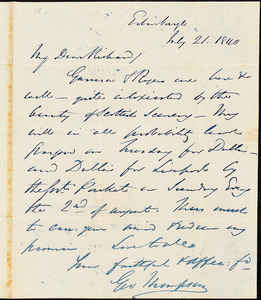 Edinburgh
July 21. 1840
My Dear Richard/
Garrison & Rogers are here &
well – quite intoxicated by the
beauty of Scottish Scenery – They
will in all probability leave
Glasgow on Thursday for Dublin –
and Dublin for Liverpool by
the Post Packet on Sunday Evng
the 2nd of August. This must
to
promise
Your faithful & affec: fd
Geo Thompson